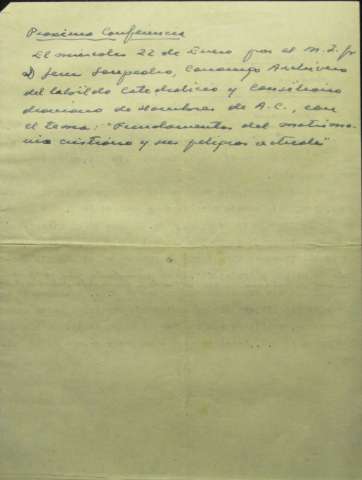 Proxima Conferencia
El miercoles 22 de Enero por el M. I. Sr
D Jesus Sanpedro, Canonigo Archivero
del Cabildo Catedralicio y Consiliario
diocesano de Hombres de A.C., con
el tema: "Fundamentos del matrimo-
nio cristiano y sus peligros actuales"